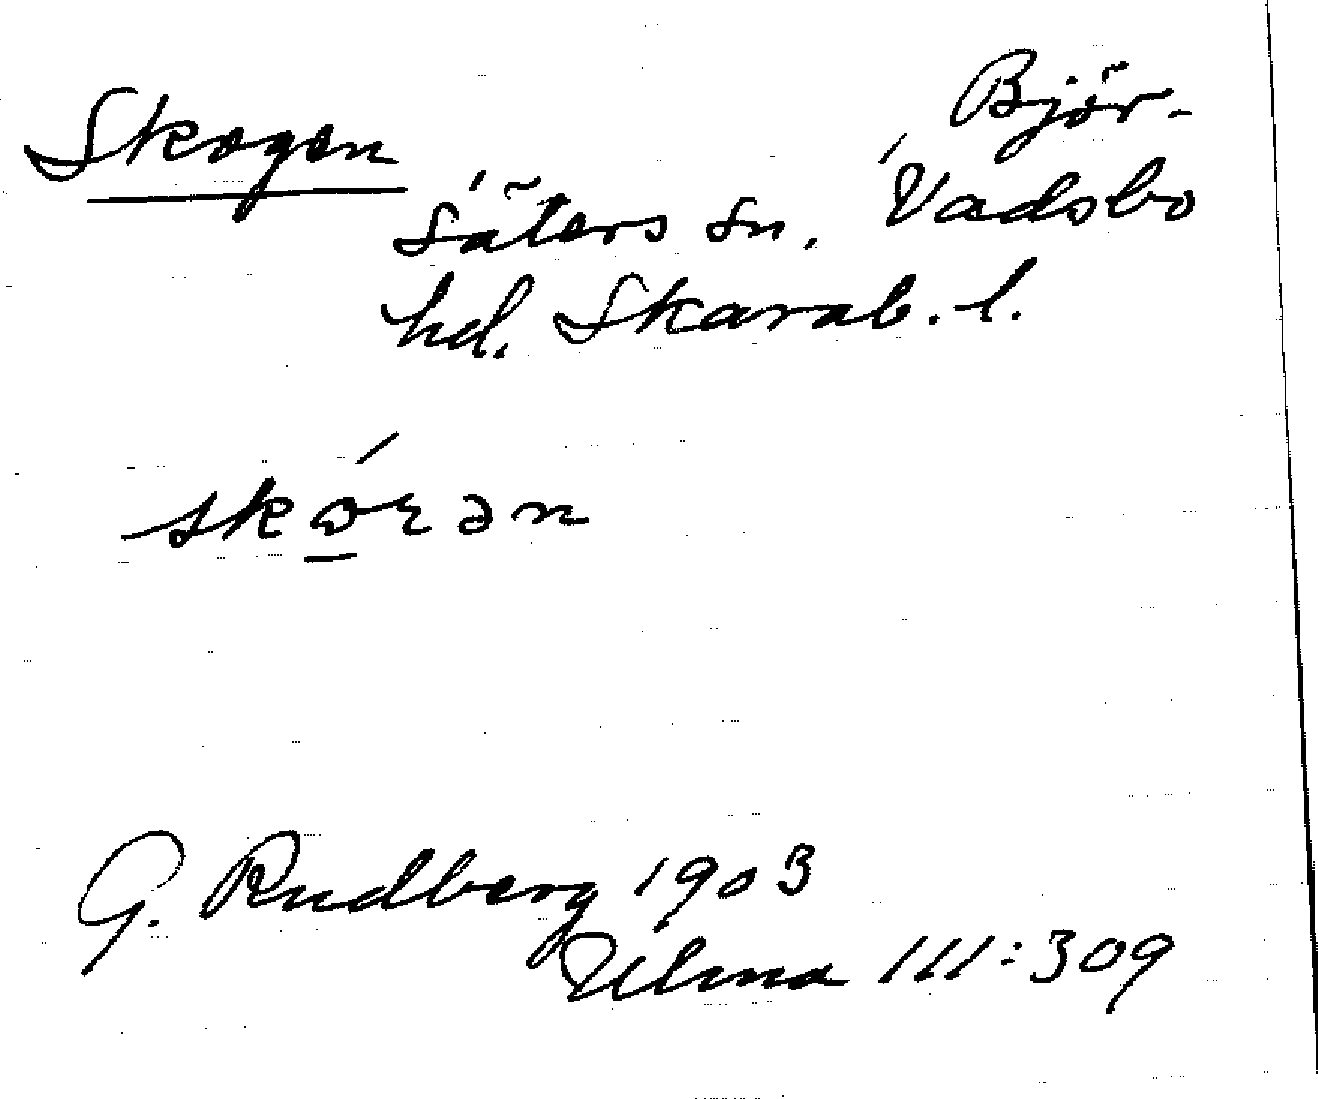 Skogen
Björ-
säters sn. Vadsbo
hd. Skarab. l.
skǫ́ɛən
G. Rudberg 1903
Ulma 111:309